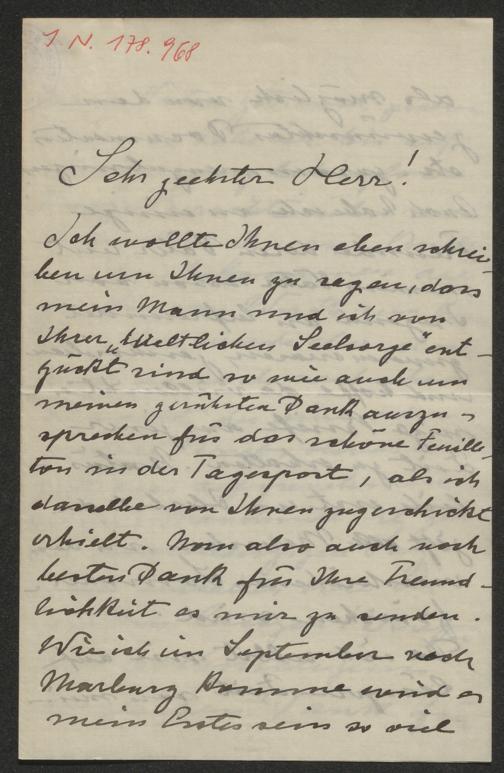 I N. 178.968
Sehr geehrter Herr!
Ich wollte Ihnen eben schrei-
ben um Ihnen zu sagen, dass
mein Mann und ich von
Ihrer „Weltlichen Seelsorge" ent-
zückt sind so wie auch um
meinen gerührten Dank auszu-
sprechen für das schöne Feuille-
ton in der Tagespost, als ich
dasselbe von Ihnen zugeschickt
erhielt. Nun also auch noch
besten Dank für Ihre Freund-
lichkeit es mir zu senden.
Wie ich im September nach
Marburg komme wird es
mein Erstes sein so viel